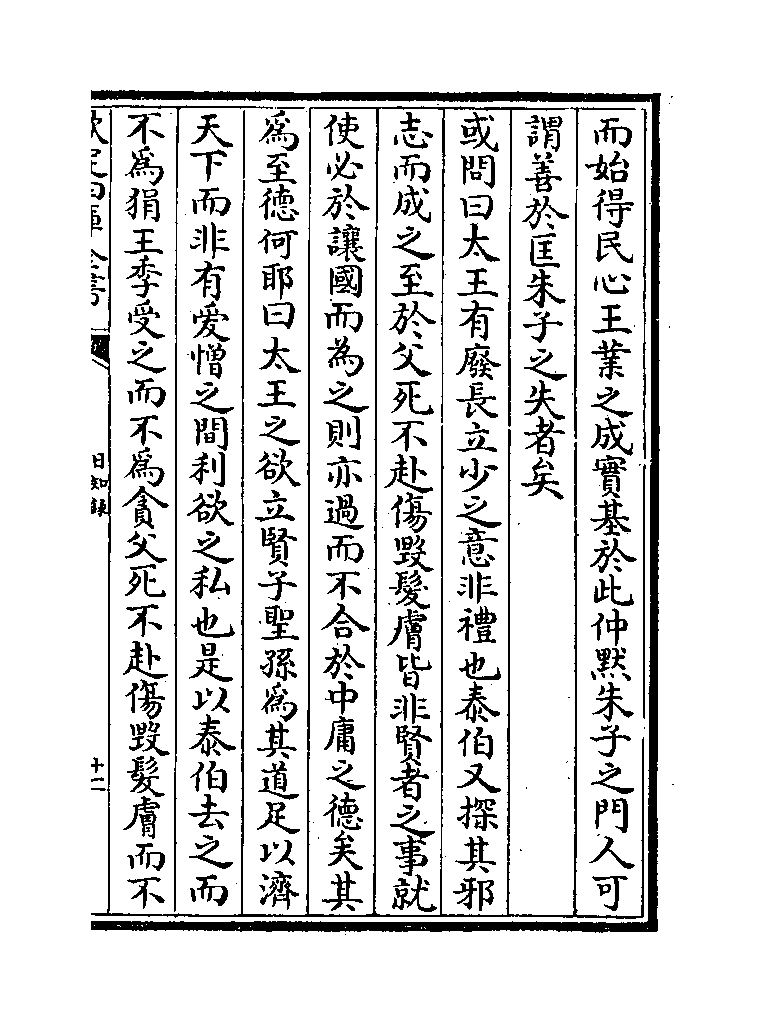 而始得民心王業之成實基於此仲黙朱子之門人可
謂善於匡朱子之失者矣
或問曰太王有廢長立少之意非禮也泰伯又探其邪
志而成之至於父死不赴傷毀髮膚皆非賢者之事就
使必於讓國而為之則亦過而不合於中庸之德矣其
為至德何耶曰太王之欲立賢子聖孫為其道足以濟
天下而非有愛憎之間利欲之私也是以泰伯去之而
不為狷王季受之而不為貪父死不赴傷毀髮膚而不
欽定四庫全書
日知錄
十二